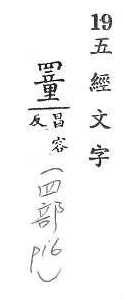 19五經文字
罿
昌容
反
(四部
p16)